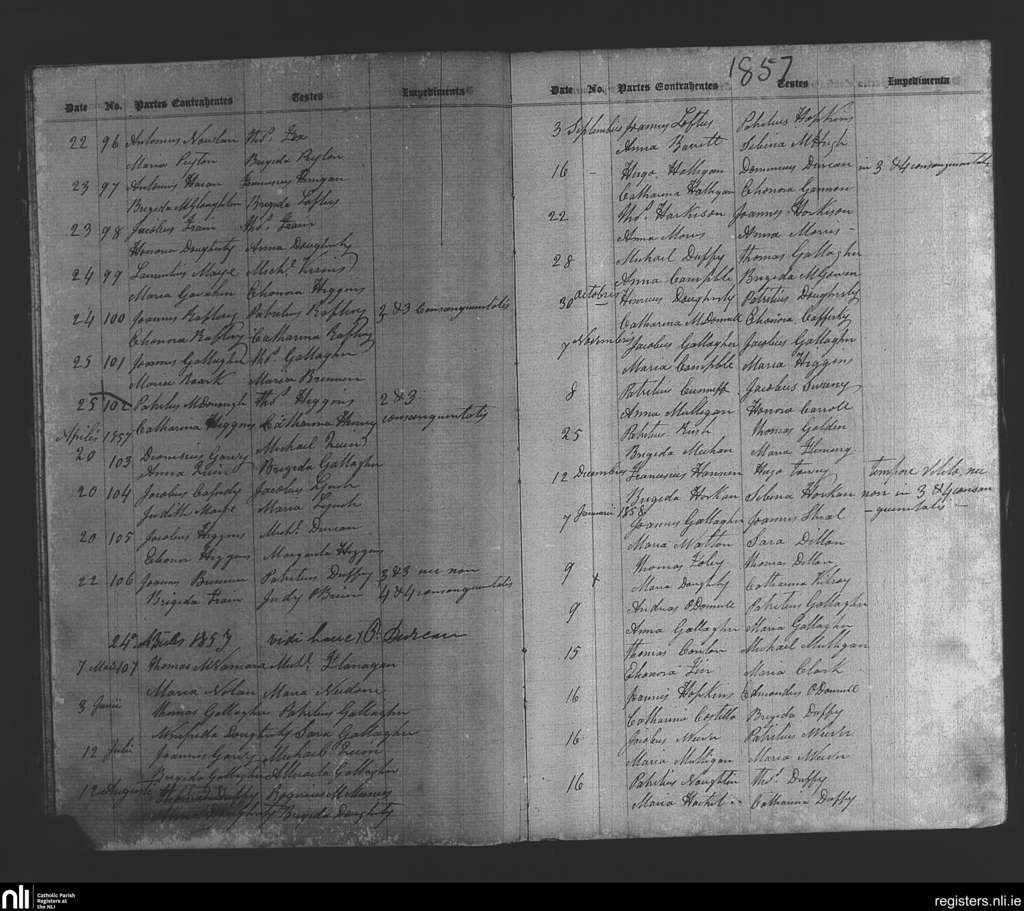 Date No. Partes Contrahentes Testes Impedimenta
22 96 Antonius Nowlan Thos. Fox
Maria Peyton Brigida Peyton
23 97 Antonius Horan Franciscus Finigan
Brigida McGloughlin Brigida Loftus
23 98 Jacobus Frain Thos. Frain
Honora Dougherty Anna Dougherty
24 99 Laurentius Mayse Michl. Kirins
Maria Gavahan Elenora Higgons
24 100 Joannes Raftery Patritius Raftery 2 & 3 Consanguinitatis
Elenora Raftery Catharina Raftery
25 101 Joannes Gallagher Thos. Gallagher
Maria Roark Maria Brennan
25 102 Patritius McDonough Thos. Higgons 2 & 3
Catharina Higgons Catharina Henry consanguinitatis
Aprilis 1857
20 103 Dionisius Garvy Michael Quin
Anna Quin Brigida Gallagher
20 104 Jacobus Cafredy Jacobus Lynch
Judith Mayse Maria Lynch
20 105 Jacobus Higgons Michl. Duncan
Elenora Higgons Margarita Higgons
22 106 Joannes Brennan Patritius Duffy 3 & 3 nec non
Brigida Frain Judy O'Brien 4 & 4 consanguinitatis
24a Aprilis 1857 vidi hunc P. Durcan
7 Maii 107 Thomas McNamara Michl. Flanagan
Maria Nolan Maria
3 Junii Thomas Gallagher Patritius Gallagher
Winifrida Dougherty Sara Gallagher
12 Julii Joannes Garvy Michael Quin
Brigida Gallagher Gallagher
12 Augusti Duffy
Anna Dougherty Brigida Dougherty
1857
Date No. Partes Contrahentes Testes Impedimenta
3 Septembris Joannes Loftus Patritius Hopkins
Anna Barrett Sibina McHugh
16 – Hugo Halligan Dominicus Duncan in 3 & 4 consanguinitatis
Catharina Halligan Elenora Gannon
22 Thos. Harkison Joannes Harkison
Anna Morris Anna Morris –
28 Michael Duffy Thomas Gallagher
Anna Campble Brigida McGowen
30 Octobris Henricus Dougherty Patritius Dougherty
Catharina McDonnell Elenora Cafferty
7 Novembris Jacobus Gallagher Jacobus Gallagher
Maria Campble Maria Higgons
8 Patritius Cunniff Jacobus Sweeny
Anna Mulligan Honora Carroll
25 Patritius Rush Thomas Golden
Brigida Meehan Maria Fleming
12 Decembris Franciscus Hannon Hugo tempore vetito nec
Brigida Horkan Sibina Horkan non in 3 & 4 consan
7 Januarii 1858 – guinitatis –
Joannes Gallagher Joannes
Maria Walton Sara Dillon
9 Thomas Foley Thomas Dillon
Maria Doughty Catharina Kilroy
9 Andreas O'Donnell Patritius Gallagher
Anna Gallagher Maria Gallagher
15 Thomas Conlon Michael Mulligan
Elenora Maria Clark
16 Joannes Hopkins Edmondus O'Donnell
Catharina Costillo Brigida Duffy
16 Jacobus Patritius
Maria Mulligan Maria
16 Patritius Naughton Thos. Duffy
Maria Catharina Duffy
nli Catholic Parish
Registers at
the NLI
registers.nli.ie